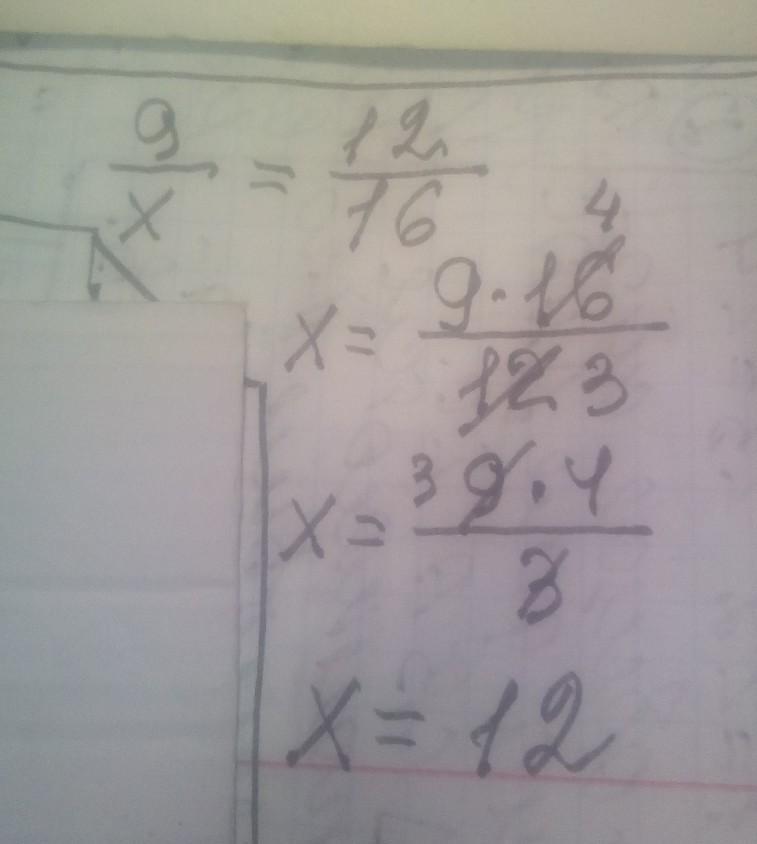 9/x = 12/16
x = 9 · 16 4 / 12 3
x = 3 9 · 4 / 3
x = 12